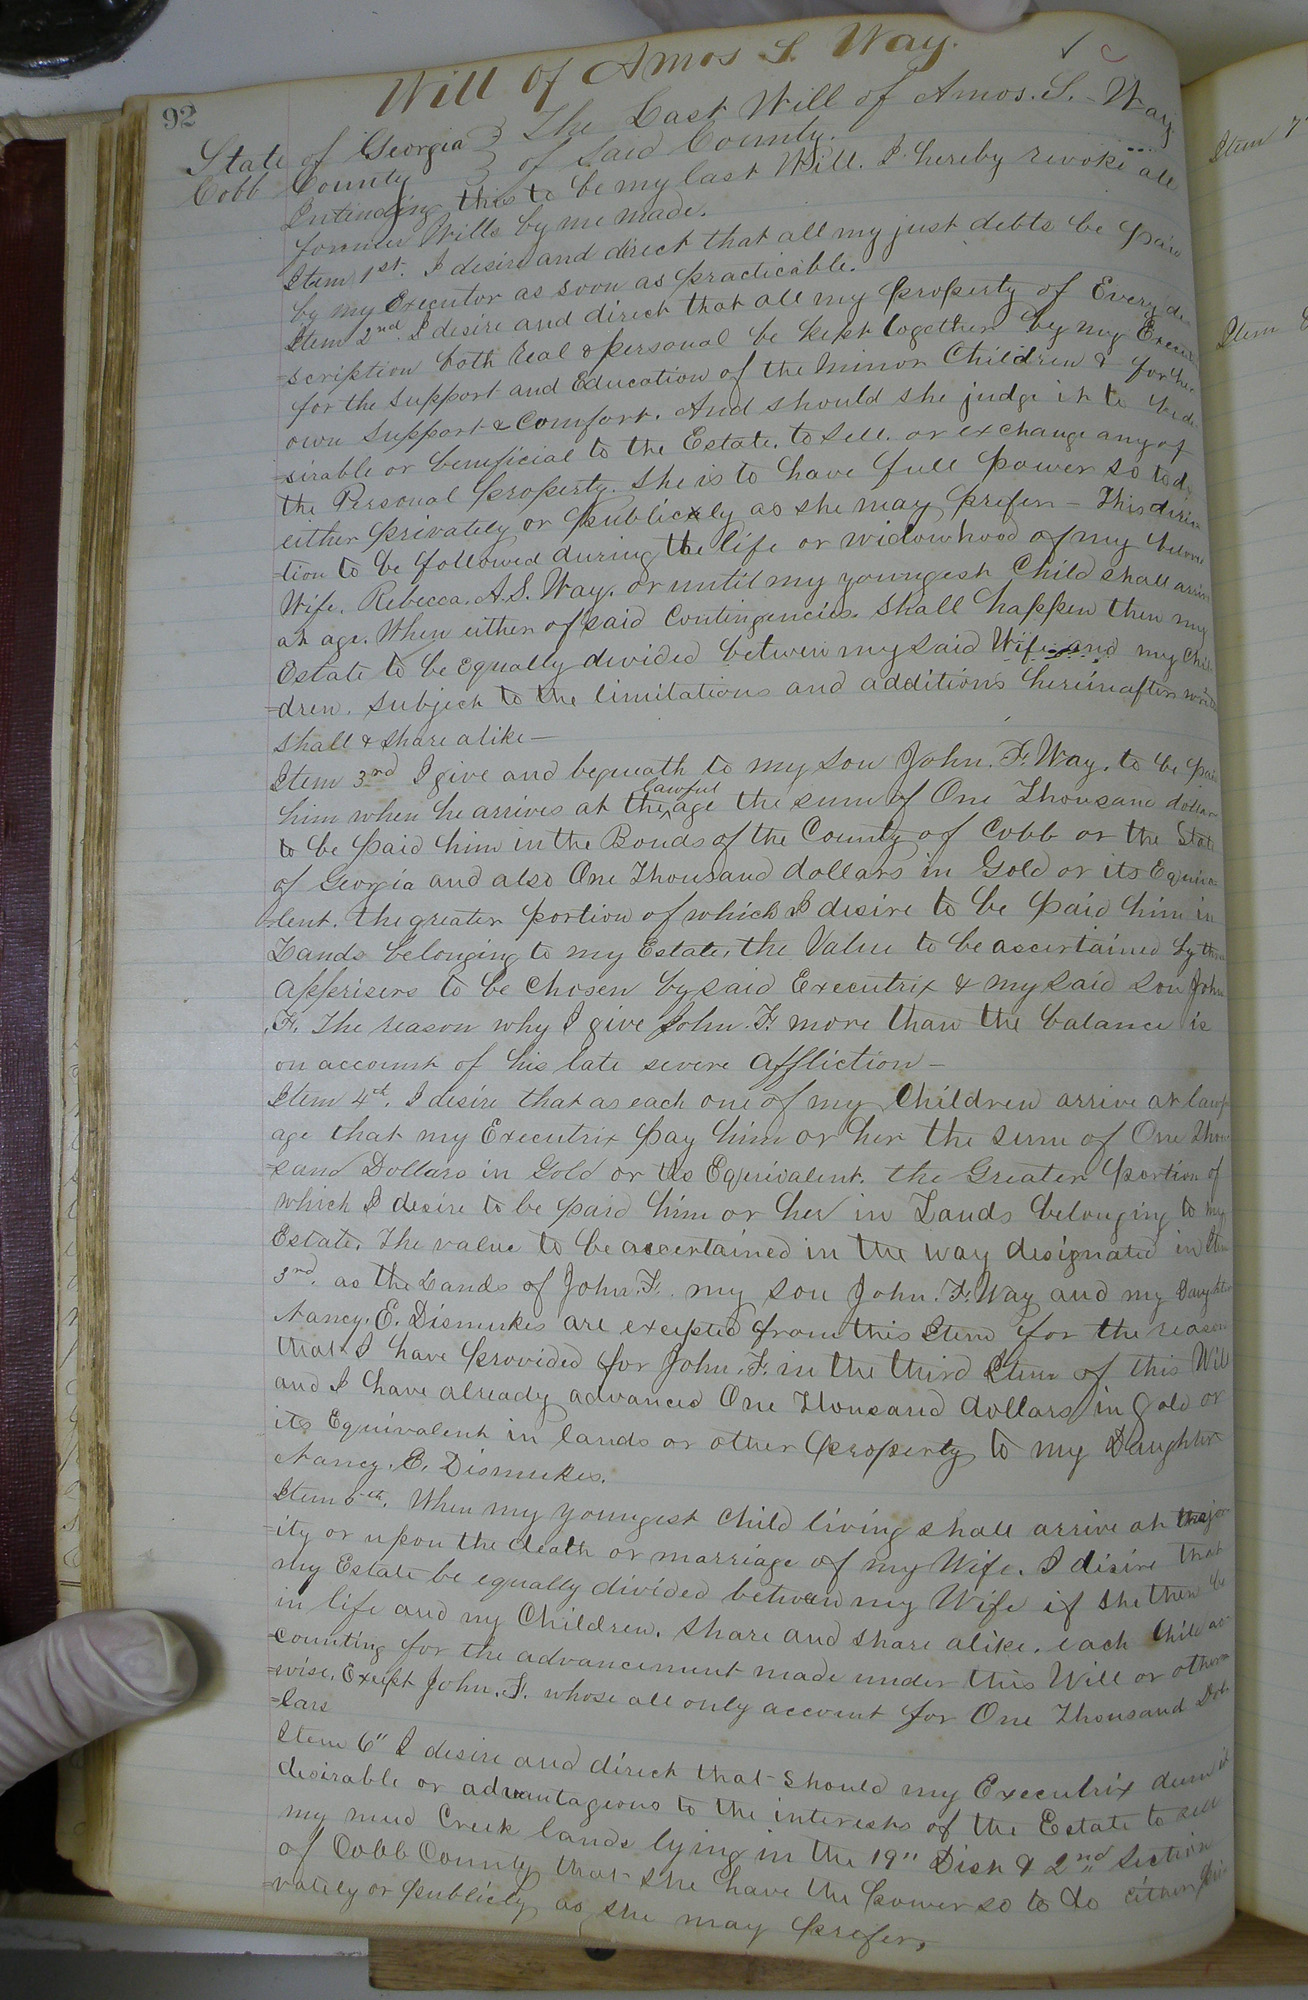 Will of Amos S. Way.
92
State of Georgia } The Last Will of Amos. S. Way
Cobb County } of Said County.
Intending this to be my last Will. I hereby revoke all
former Wills by me made.
Item 1st. I desire and direct that all my just debts be paid
by my Executor as soon as practicable.
Item 2nd. I desire and direct that all my property of Every de-
=scription both real & personal be kept together by my Execu
for the support and Education of the minor Children & for her
own support & comfort. And should she judge it to be de
=sirable or beneficial to the Estate. to sell. or exchange any of
the Personal property. She is to have full power so to do
either privately or publicxly as she may prefer - This direc
=tion to be followed during the life or widowhood of my beloved
Wife. Rebecca. A. S. Way. or until my youngest Child shall arrive
at age. When either of said Contingencies. shall happen then my
Estate to be equally divided between my said Wife and my Chil
=dren. subject to the limitations and additions hereinafter
shall & share alike—
Item 3rd I give and bequeath to my son John. F. Way. to be paid
him when he arrives at the lawful age the sum of One Thousand dollars
to be paid him in the Bonds of the County of Cobb or the State
of Georgia and also One Thousand dollars in Gold or its Equiva
lent. the greater portion of which I desire to be paid him in
Lands belonging to my Estate, the Value to be ascertained by three
apprisers to be chosen by said Executrix & my said son John
.F. The reason why I give John. F. more than the balance is
on account of his late severe affliction—
Item 4th. I desire that as each one of my Children arrive at lawf
age that my Executrix pay him or her the sum of One Thou
=sand Dollars in Gold or its Equivalent. the Greater portion of
which I desire to be paid him or her in Lands belonging to my
Estate. The value to be ascertained in the way designated in Item
3rd. as the Lands of John. F. my son John. F. Way and my Daughter
Nancy. E. Dismukes are excepted from this Item for the reason
that I have provided for John. F. in the third Item of this Will
and I have already advanced One Thousand dollars in Gold or
its Equivalent in lands or other property to my Daughter
Nancy. E. Dismukes.
Item 5th. When my youngest Child living shall arrive at major
=ity or upon the death or marriage of my Wife. I disire that
my Estate be equally divided between my Wife if she then be
in life and my Children. share and share alike. each Child ac
=counting for the advancement made under this Will or other
=wise. Except John. F. whose all only account for One Thousand Dol
=lars
Item 6" I desire and direct that should my Executrix deem it
desirable or advantageous to the interests of the Estate to sell
my mud Creek lands lying in the 19" Dist & 2nd Section
of Cobb County that she have the power so to do either pri
=vately or publicly as she may prefer.
Item 7
Item